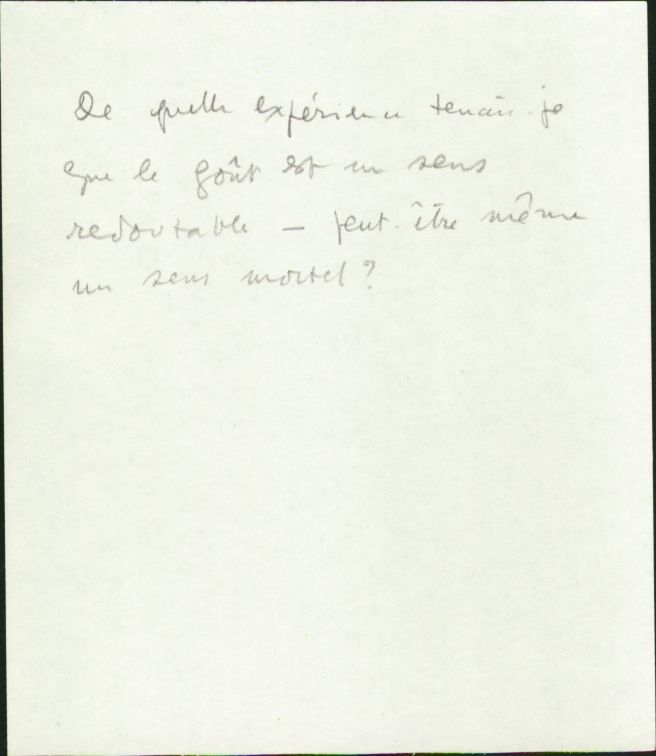 De quelle expérience tenais-je
que le goût est un sens
redoutable — peut-être même
un sens mortel ?